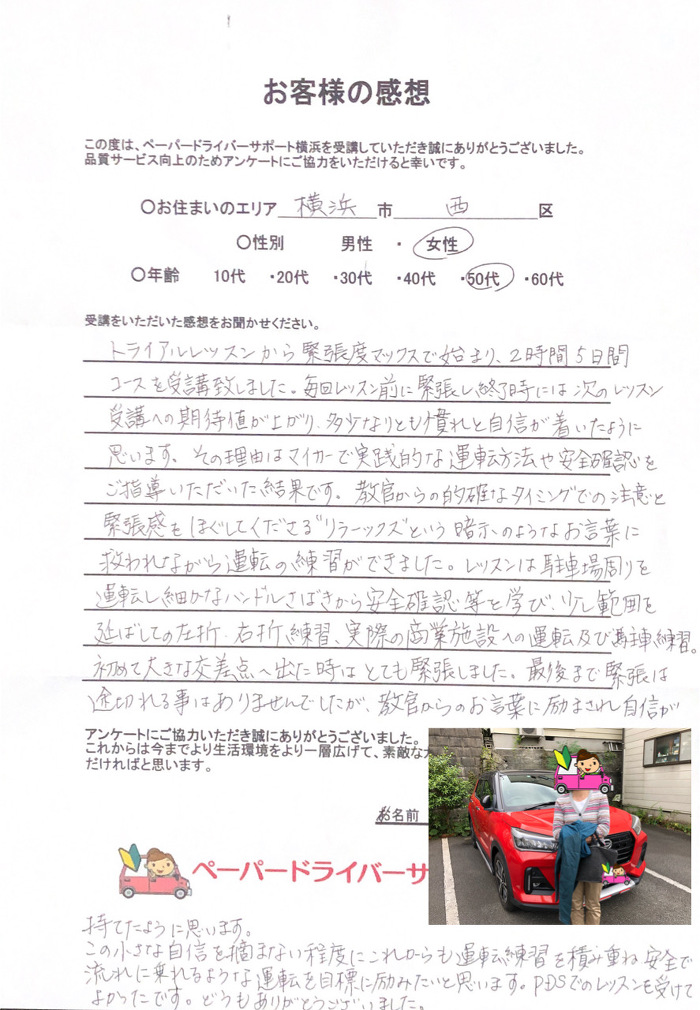 お客様の感想
この度は、ペーパードライバーサポート横浜を受講していただき誠にありがとうございました。
品質サービス向上のためアンケートにご協力をいただけると幸いです。
〇お住まいのエリア 横浜 市 西 区
〇性別 男性 ・ 女性
〇年齢 10代 ・20代 ・30代 ・40代 ・50代 ・60代
受講をいただいた感想をお聞かせください。
トライアルレッスンから緊張度マックスで始まり、2時間5日間
コースを受講致しました。毎回レッスン前に緊張し終了時には次のレッスン
受講への期待値が上がり、多少なりとも慣れと自信が着いたように
思います。その理由はマイカーで実践的な運転方法や安全確認を
ご指導いただいた結果です。教官からの的確なタイミングでの注意と
緊張感をほぐしてくださる"リラーックス"という暗示のようなお言葉に
救われながら運転の練習ができました。レッスンは駐車場周りを
運転し細かなハンドルさばきから安全確認等を学び、少し範囲を
延ばしての左折、右折練習、実際の商業施設への運転及び駐車練習。
初めて大きな交差点へ出た時はとても緊張しました。最後まで緊張は
途切れる事はありませんでしたが、教官からのお言葉に励まされ自信が
アンケートにご協力いただき誠にありがとうございました。
これからは今までより生活環境をより一層広げて、素敵な
だければと思います。
お名前
ペーパードライバーサ
持てたように思います。
この小さな自信を摘まない程度にこれからも運転練習を積み重ね安全で
流れに乗れるような運転を目標に励みたいと思います。PDSでのレッスンを受けて
よかったです。どうもありがとうございました。